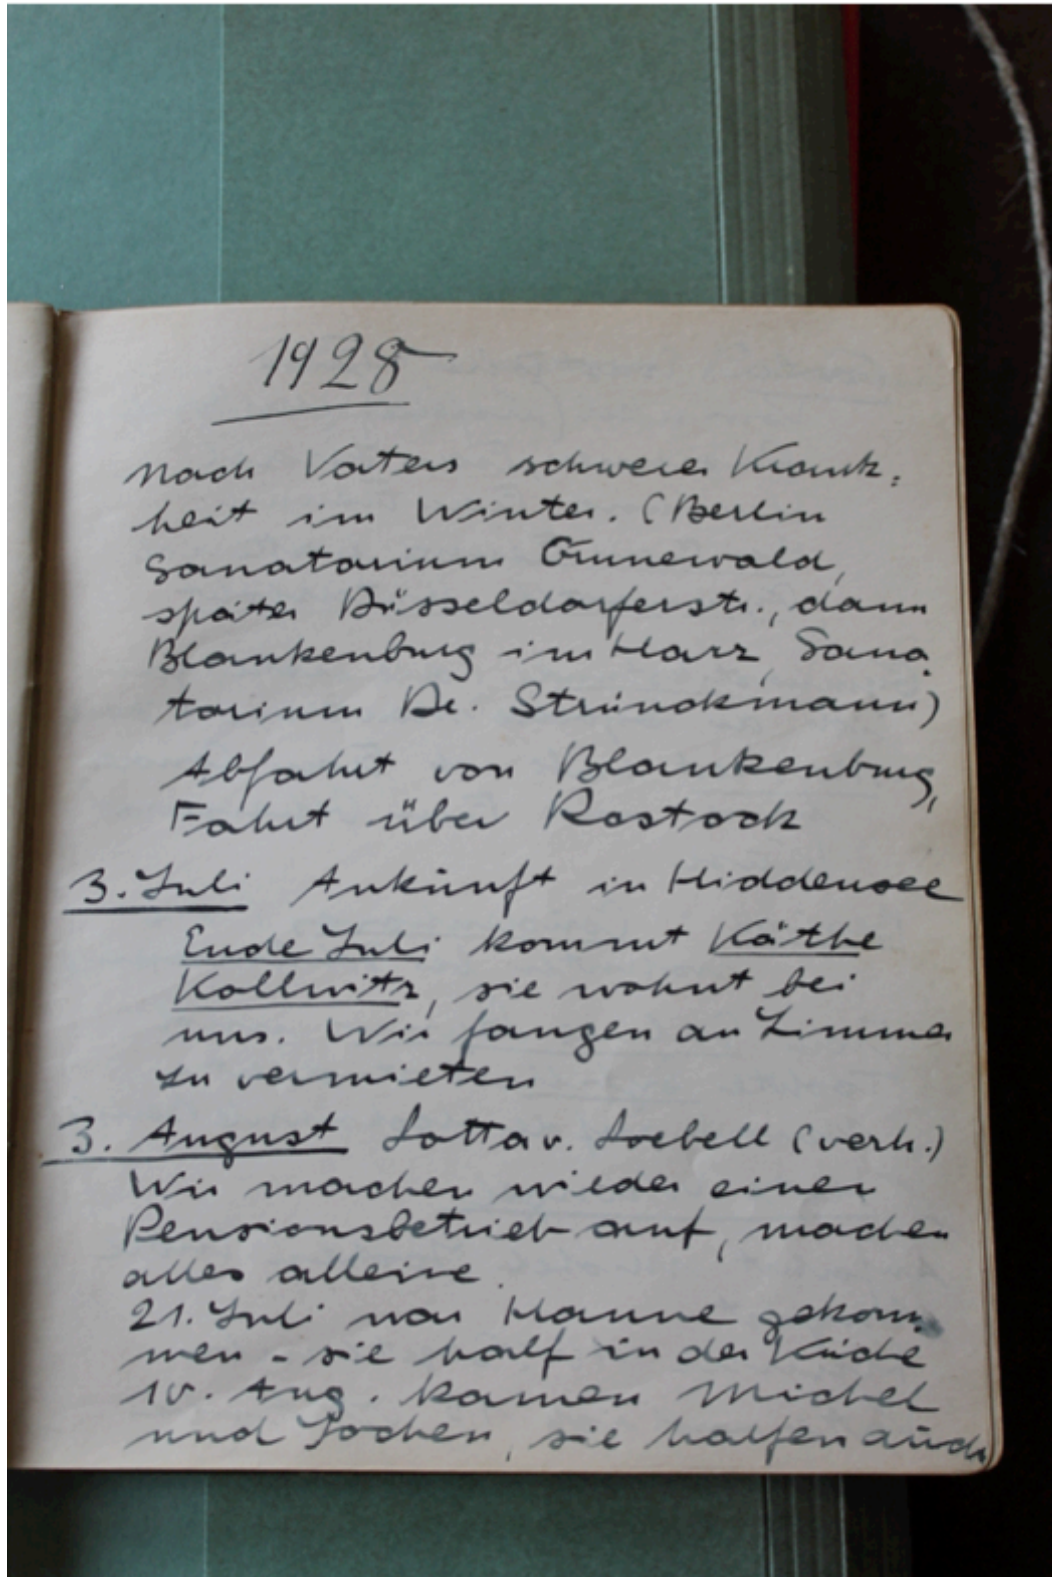 1928
Nach Vaters schwerer Krank=
heit im Winter. (Berlin
Sanatorium Grunewald,
später Düsseldorferstr., dann
Blankenburg im Harz, Sana
torium Dr. Strünckmann)
Abfahrt von Blankenburg,
Fahrt über Rostock
3. Juli Ankunft in Hiddensee
Ende Juli kommt Käthe
Kollwitz, sie wohnt bei
uns. Wir fangen an Zimmer
zu vermieten
3. August Lotta v. Loebell (verh.)
Wir machen wieder einen
Pensionsbetrieb auf, machen
alles alleine.
21. Juli war Hanne gekom=
men - sie half in der Küche
10. Aug. kamen Michel
und Jochen, sie halfen auch